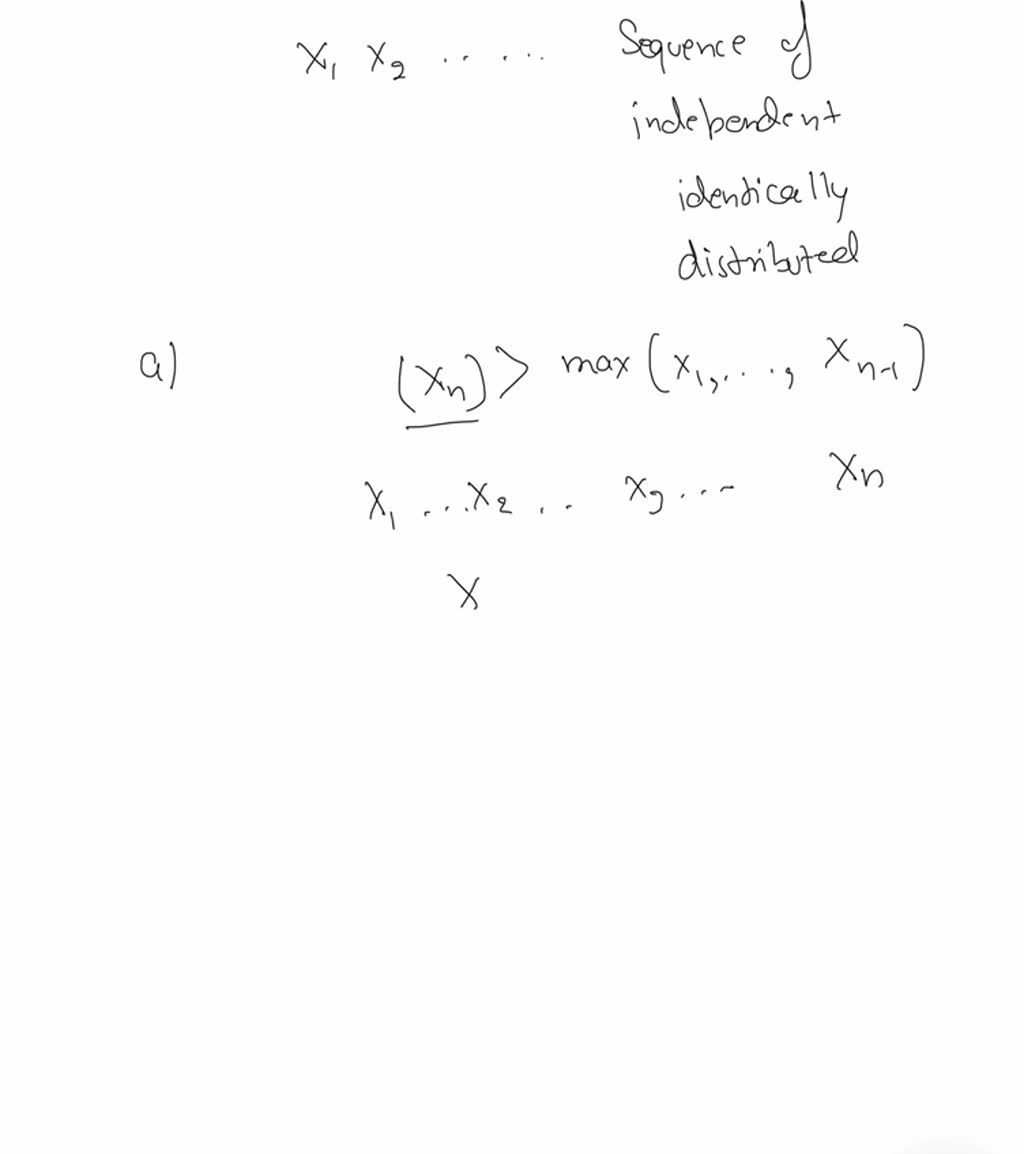 X₁ X₂ ...... Sequence of
independent
identically
distributed
a) (Xₙ) > max (X₁, ..., Xₙ₋₁)
X₁ ...X₂ .. X₃ ... Xₙ
X